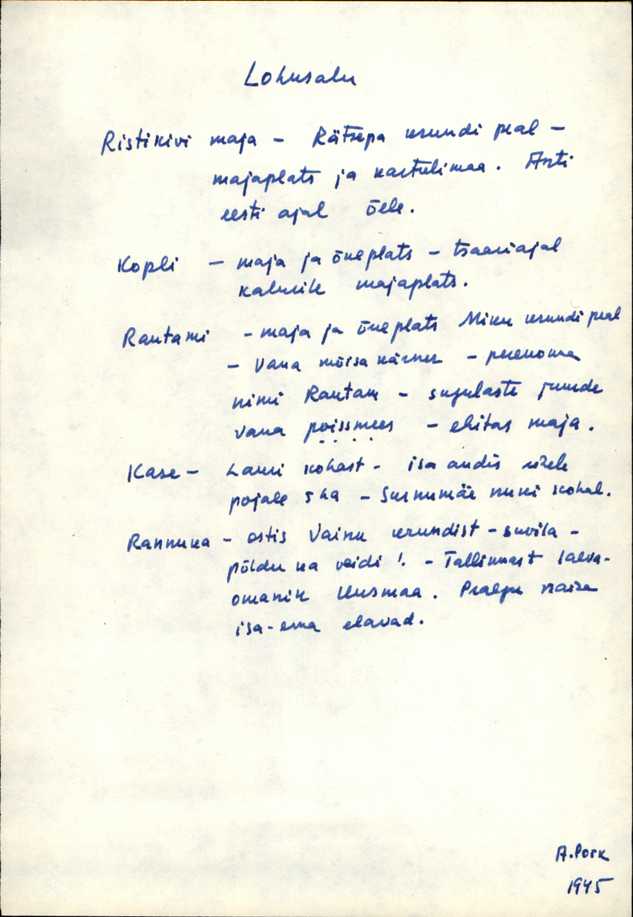 Lohusalu
Ristikivi maja - Rätsepa krundi peal -
majaplats ja kartulimaa. Anti
eesti ajal õele.
Kopli - maja ja õueplats - tsaariajal
kalurile majaplats.
Rautami - maja ja õueplats Miku krundi peal
- Vana mõisa kärner - perekonna
nimi Rautam - sugulaste juurde
vana poissmees - ehitas maja.
Kase - Lauri kohast - isa andis
pojale 5 ha - Surnumäe nuki kohal.
Rannuka - ostis Vainu krundist - suvila -
põldu ka veidi! - Tallinnast laeva-
omanik Uusmaa. Praegu naise
isa-ema elavad.
A. Pork
1945